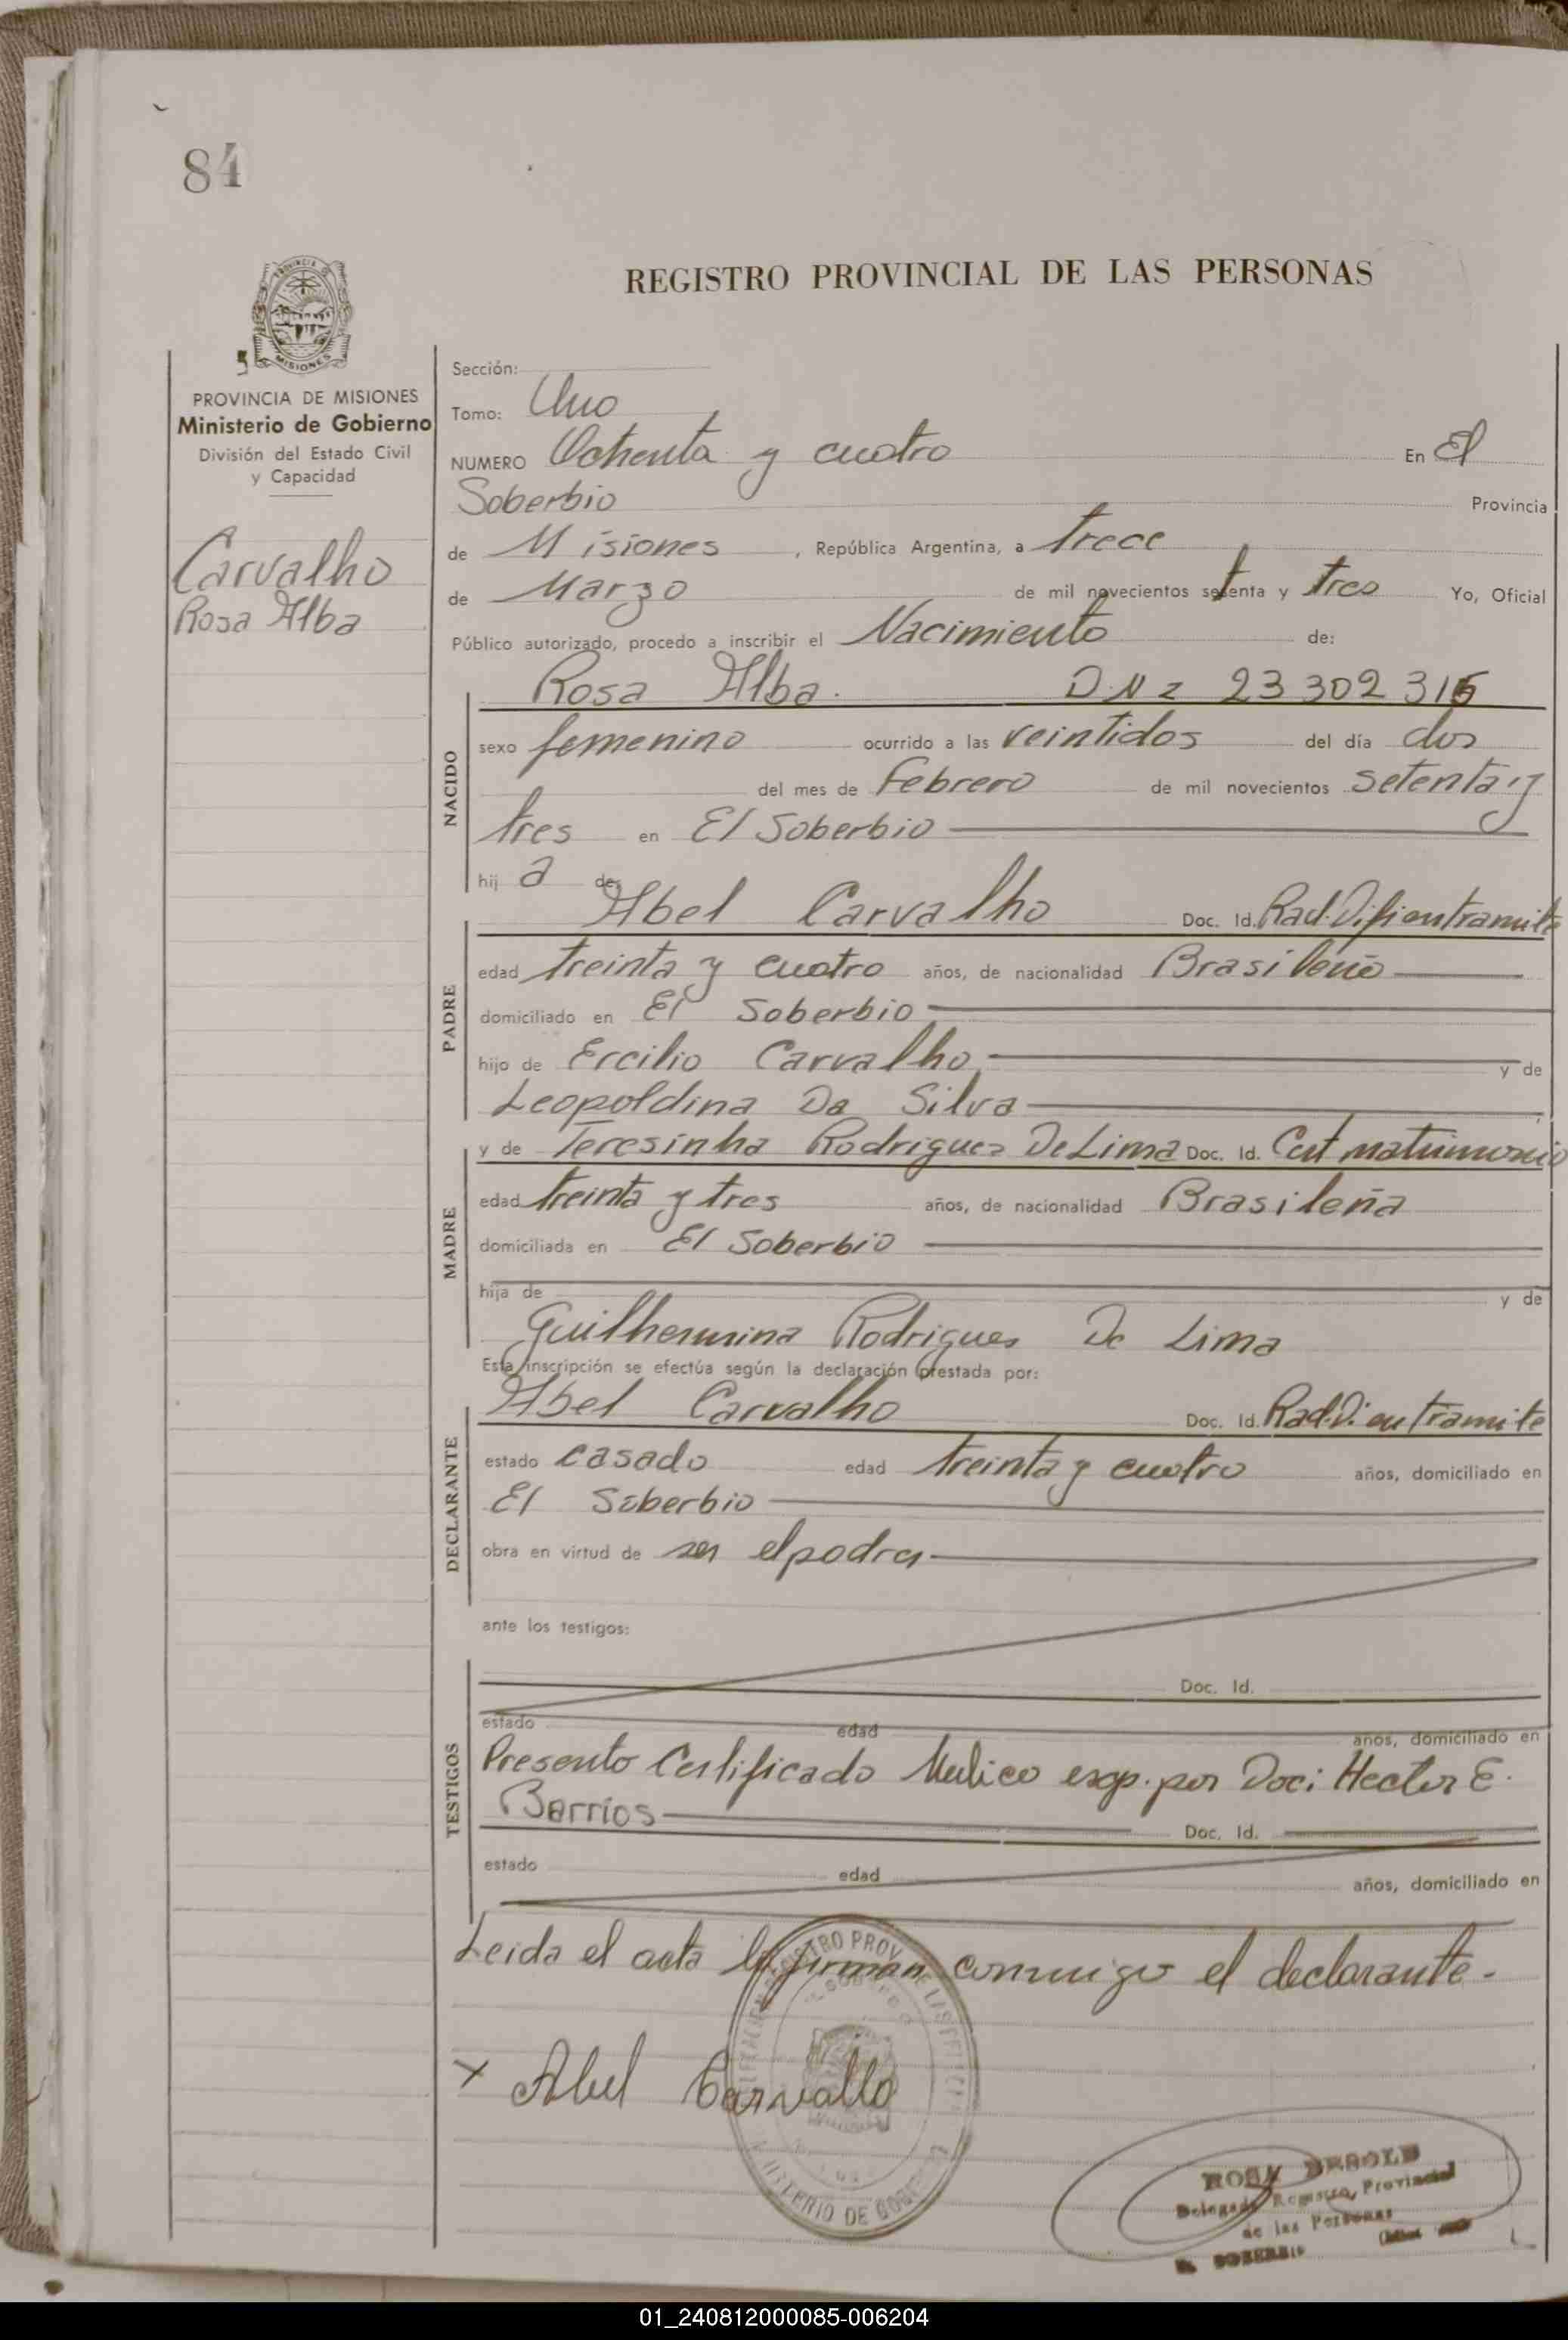 84
REGISTRO PROVINCIAL DE LAS PERSONAS
MISIONES
PROVINCIA DE MISIONES
Ministerio de Gobierno
División del Estado Civil
y Capacidad
Carvalho
Rosa Alba
Sección:
Tomo: Uno
NUMERO Ochenta y cuatro En El
Soberbio Provincia
de Misiones , República Argentina, a trece
de Marzo de mil novecientos setenta y tres Yo, Oficial
Público autorizado, procedo a inscribir el Nacimiento de:
NACIDO
Rosa Alba. 23 302 316
sexo femenino ocurrido a las veintidos del día dos
del mes de Febrero de mil novecientos setenta y
tres en El Soberbio
hij a de
PADRE
Abel Carvalho Doc. Id. Rad. en tramite
edad treinta y cuatro años, de nacionalidad Brasileño
domiciliado en El Soberbio
hijo de Ercilio Carvalho y de
Leopoldina Da Silva
MADRE
y de Teresinha Rodriguez De Lima Doc. Id. Cert matrimonio
edad treinta y tres años, de nacionalidad Brasileña
domiciliada en El Soberbio
hija de y de
Guilhermina Rodrigues De Lima
Esta inscripción se efectúa según la declaración prestada por:
DECLARANTE
Abel Carvalho Doc. Id. Rad. D. en tramite
estado casado edad treinta y cuatro años, domiciliado en
El Soberbio
obra en virtud de ser el padre
ante los testigos:
TESTIGOS
Doc. Id.
estado edad años, domiciliado en
Presento Certificado Medico exp. por Doc: Hector E.
Barrios Doc. Id.
estado edad años, domiciliado en
Leida el acta la firman conmigo el declarante.
x Abel Carvallo
REGISTRO PROV DE LAS PERSONAS
MINISTERIO DE GOBIERNO
ROSA
Delegada Registro Provincial
de las Personas
EL SOBERBIO
01_240812000085-006204